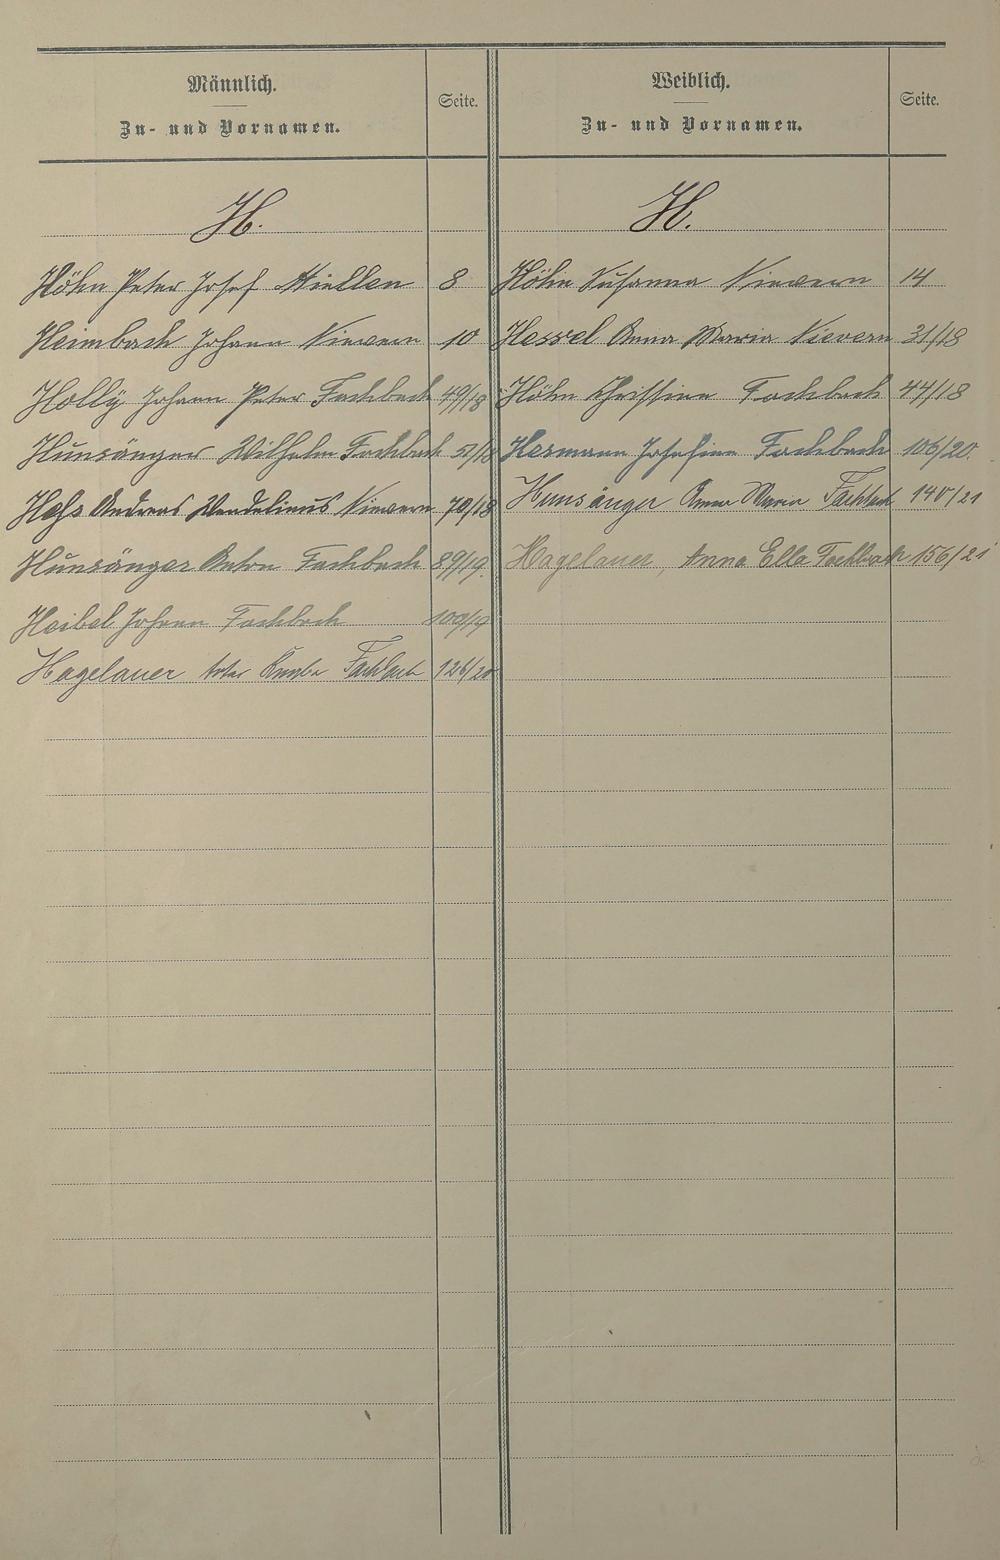 Männlich.
Zu- und Vornamen.
Seite.
H.
Höhn Peter Josef Miellen 8
Heimbach Johann Nievern 10
Holly Johann Peter Fachbach 49/18
Hunsänger Wilhelm Fachbach 52/18
Andreas Wendelinus Nievern 70/18
Hunsänger Anton Fachbach 89/19.
Heibel Johann Fachbach 100/19
Hagelauer toter Knabe Fachbach 126/20
Weiblich.
Zu- und Vornamen.
Seite.
H.
Höhn Susanna Nievern 14
Hessel Anna Maria Nievern 31/18
Höhn Christine Fachbach 44/18
Hermann Josefine Fachbach 106/20.
Hunsänger Anna Maria Fachbach 140/21
Hagelauer, Anna Ella Fachbach 156/21